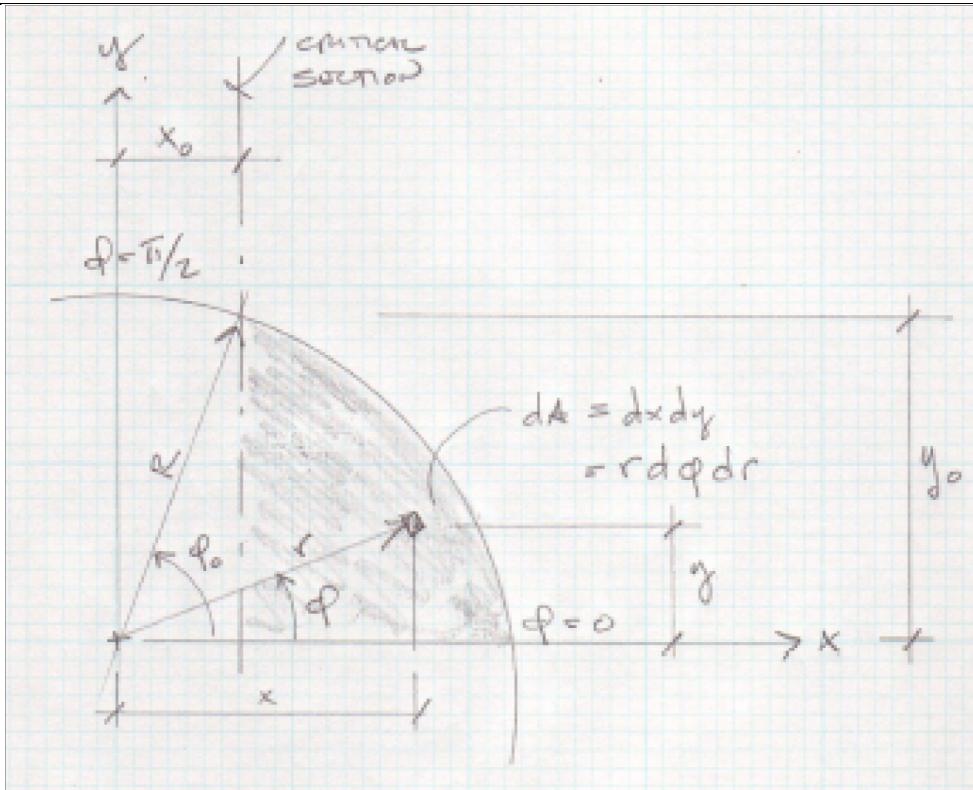 y
CRITICAL
SECTION
x₀
φ=π/2
dA = dxdy
= r dφ dr
R
y₀
φ₀
r
φ
y
φ=0
x
x